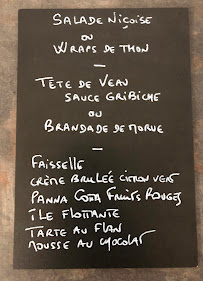 SALADE NIÇOISE
OU
WRAPS DE THON
—
TÊTE DE VEAU
SAUCE GRIBICHE
OU
BRANDADE DE MORUE
—
FAISSELLE
CRÈME BRULÉE CITRON VERT
PANNA COTTA FRUITS ROUGES
ÎLE FLOTTANTE
TARTE AU FLAN
MOUSSE AU CHOCOLAT